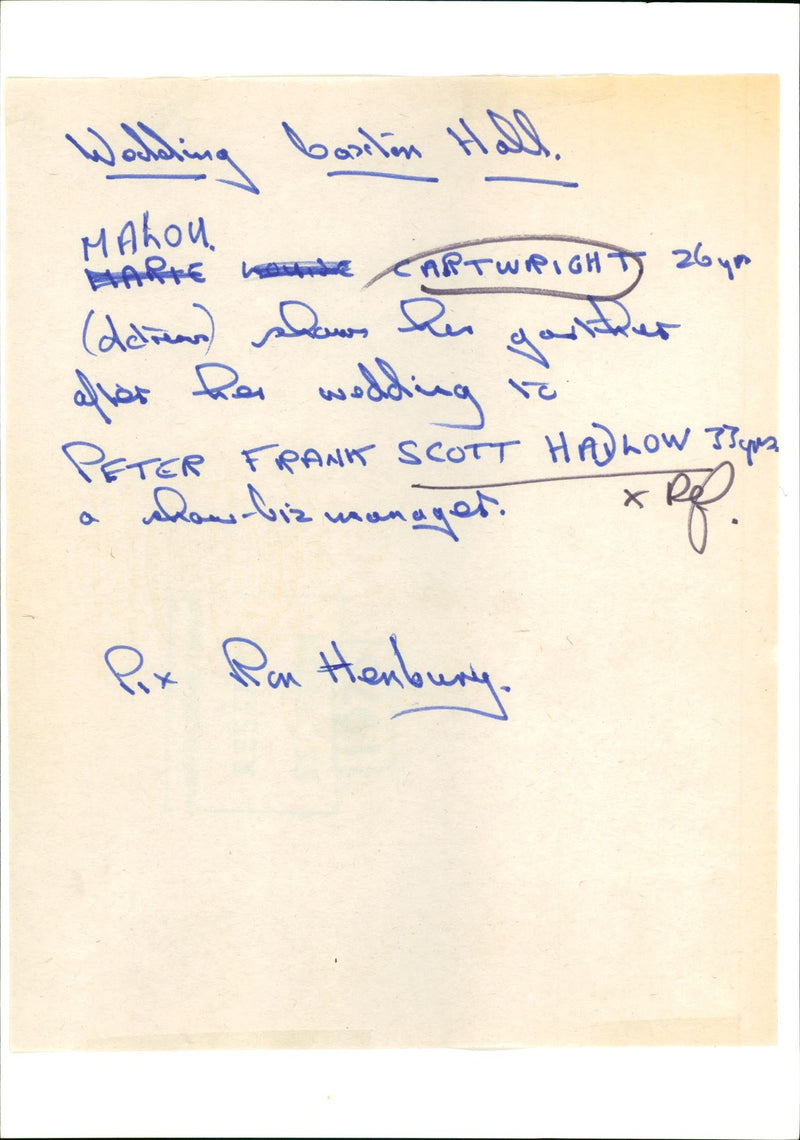 Wedding Caxton Hall.
MALOU.
MARIE LOUISE CARTWRIGHT 26 yrs
(actress) shows her garther
after her wedding to
PETER FRANK SCOTT HADLOW 33 yrs
a show-biz manager.
x Ref.
Pix Ron Henbury.